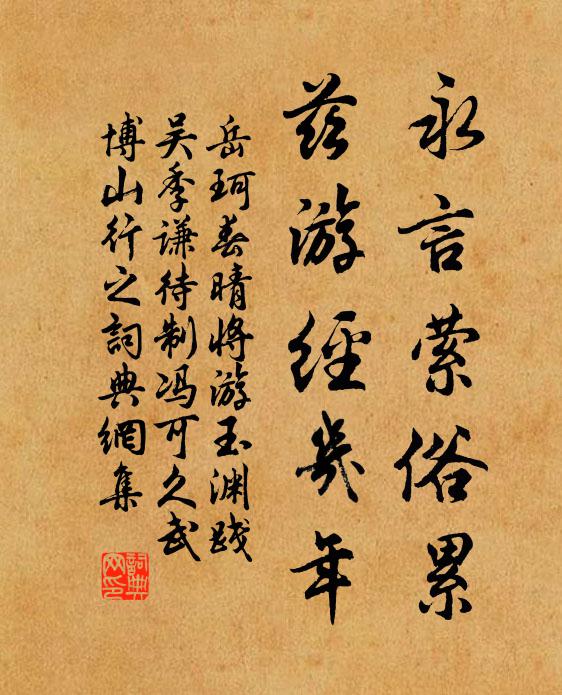 永言萦俗累
兹游經幾年
岳珂春晴将游玉渊踐
吴季谦待制冯可久武
博山行之詞典網集
詞典网印